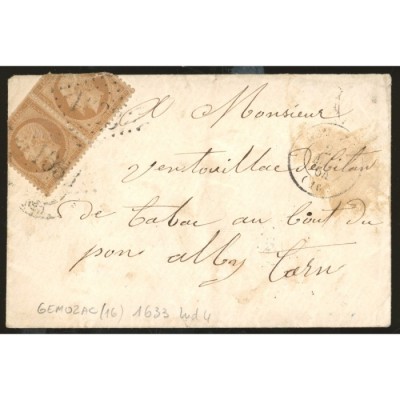 A Monsieur
ventouillac debitan
de tabac au bout du
pon alby Tarn
(16)
GEMOZAC (16) 1633 Ind 4